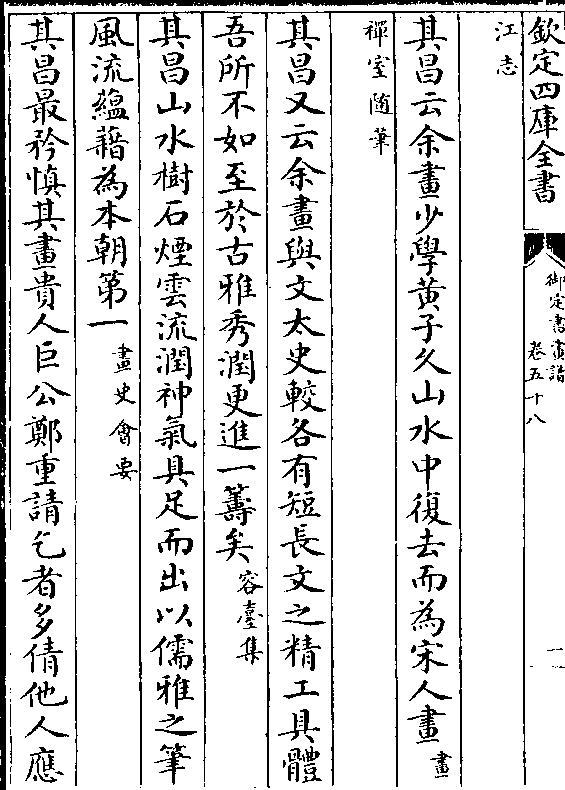 欽定四庫全書
御定書畫譜
卷五十八
一
江志
其昌云余畫少學黄子久山水中復去而為宋人畫畫
禪室随筆
其昌又云余畫與文太史較各有短長文之精工具體
吾所不如至於古雅秀潤更進一籌矣容臺集
其昌山水樹石煙雲流潤神氣具足而出以儒雅之筆
風流蘊藉為本朝第一畫史會要
其昌最矜慎其畫貴人巨公鄭重請乞者多倩他人應